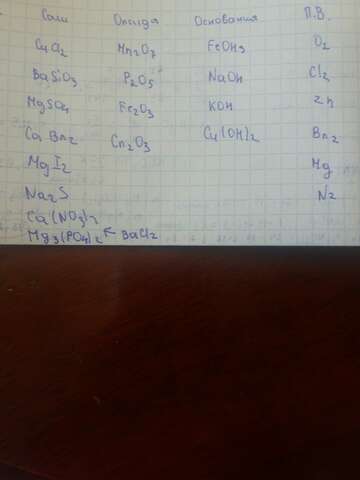 Соли Оксида Основания П.В.
CuCl2 Mn2O7 FeOH3 O2
BaSiO3 P2O5 NaOh Cl2
MgSO4 Fe2O3 KOH Zn
CaBr2 Cr2O3 Cu(OH)2 Br2
MgI2 Mg
Na2S N2
Ca(NO3)2
Mg3(PO4)2 ← BaCl2